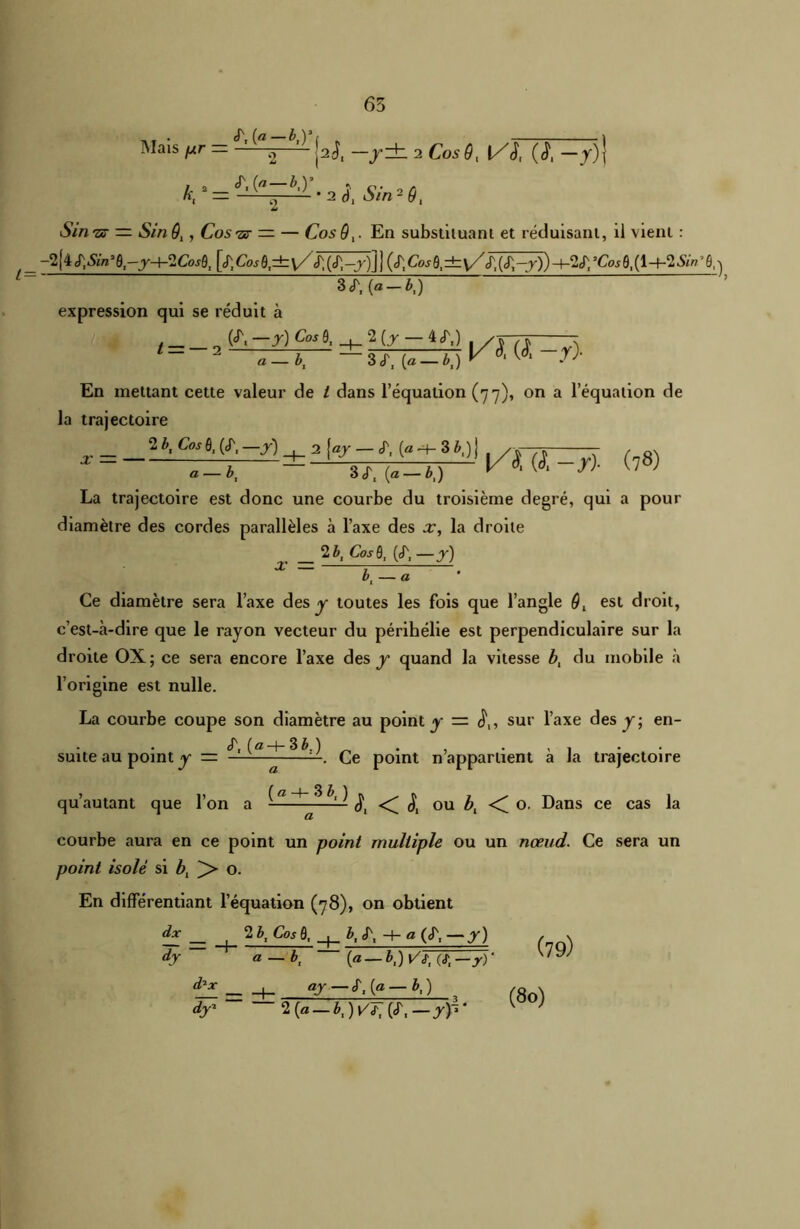 63
Mais μr = δ₁(a—b₁)²/2 {2δ₁ —y ± 2 Cos θ₁ √δ₁ (δ₁ —y)}
k₁² = δ₁(a—b₁)²/2 · 2 δ₁ Sin² θ₁
Sin ϖ = Sin θ₁, Cos ϖ = — Cos θ₁. En substituant et réduisant, il vient :
t = −2{4δ₁Sin²θ₁−y+2Cosθ₁ [δ₁Cosθ₁±√δ₁(δ₁−y)]} (δ₁Cosθ₁±√δ₁(δ₁−y)) +2δ₁²Cosθ₁(1+2Sin²θ₁) / 3δ₁(a—b₁),
expression qui se réduit à
t = — 2 (δ₁ —y) Cos θ₁ / a — b₁ ± 2 (y — 4δ₁) / 3δ₁ (a — b₁) √δ₁ (δ₁ —y).
En mettant cette valeur de t dans l'équation (77), on a l'équation de
la trajectoire
x = — 2 b₁ Cos θ₁ (δ₁ —y) / a — b₁ ± 2 {ay — δ₁ (a + 3 b₁)} / 3δ₁ (a — b₁) √δ₁ (δ₁ —y). (78)
La trajectoire est donc une courbe du troisième degré, qui a pour
diamètre des cordes parallèles à l'axe des x, la droite
x = 2b₁ Cosθ₁ (δ₁ —y) / b₁ — a .
Ce diamètre sera l'axe des y toutes les fois que l'angle θ₁ est droit,
c'est-à-dire que le rayon vecteur du périhélie est perpendiculaire sur la
droite OX; ce sera encore l'axe des y quand la vitesse b₁ du mobile à
l'origine est nulle.
La courbe coupe son diamètre au point y = δ₁, sur l'axe des y; en-
suite au point y = δ₁ (a + 3b₁) / a. Ce point n'appartient à la trajectoire
qu'autant que l'on a (a + 3b₁) / a δ₁ < δ₁ ou b₁ < o. Dans ce cas la
courbe aura en ce point un point multiple ou un nœud. Ce sera un
point isolé si b₁ > o.
En différentiant l'équation (78), on obtient
dx/dy = + 2 b₁ Cos θ₁ / a — b₁ ± b₁ δ₁ + a (δ₁ —y) / (a—b₁) √δ₁ (δ₁—y)' (79)
d²x/dy² = ± ay — δ₁ (a — b₁) / 2 (a—b₁) √δ₁ (δ₁ —y)^(3/2) · (80)